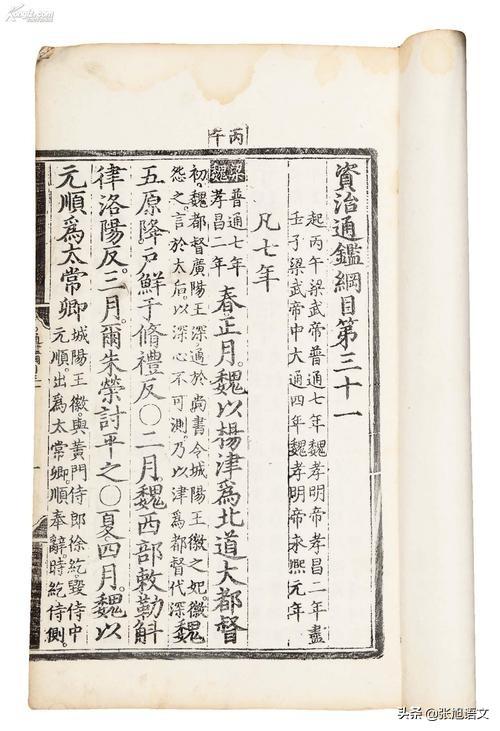 資治通鑑綱目第三十一
起丙午梁武帝普通七年魏孝明帝孝昌二年盡
壬子梁武帝中大通四年魏孝明帝永熙元年
凡七年
丙午
梁普通七年
魏孝昌二年
春正月。魏以楊津爲北道大都督
初。魏都督廣陽王深通於尚書令城陽王徽之妃。徽
怨之。言於太后。以深心不可測。乃以津爲都督代深
魏
五原降户鮮于脩禮反〇二月。魏西部敕勒斛
律洛陽反。三月。爾朱榮討平之〇夏四月。魏以
元順爲太常卿
城陽王徽。與黄門侍郎徐紇。毀侍中
元順。出爲太常卿。順奉辭。時紇侍側。
Kongfz.com
头条 @张旭语文